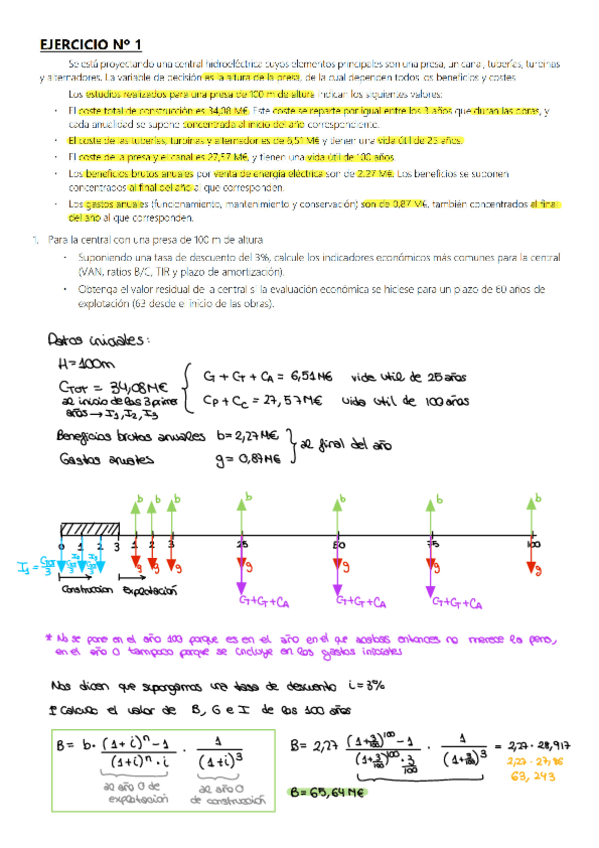 EJERCICIO Nº 1
Se está proyectando una central hidroeléctrica cuyos elementos principales son una presa, un canal, tuberías, turbinas
y alternadores. La variable de decisión es la altura de la presa, de la cual dependen todos los beneficios y costes.
Los estudios realizados para una presa de 100 m de altura indican los siguientes valores:
· El coste total de construcción es 34,08 M€. Este coste se reparte por igual entre los 3 años que duran las obras, y
cada anualidad se supone concentrada al inicio del año correspondiente.
· El coste de las tuberías, turbinas y alternadores es de 6,51 M€ y tienen una vida útil de 25 años.
· El coste de la presa y el canal es 27,57 M€, y tienen una vida útil de 100 años
· Los beneficios brutos anuales por venta de energía eléctrica son de 2,27 M€. Los beneficios se suponen
concentrados al final del año al que corresponden.
· Los gastos anuales (funcionamiento, mantenimiento y conservación) son de 0,87 M€, también concentrados al final
del año al que corresponden.
1. Para la central con una presa de 100 m de altura
· Suponiendo una tasa de descuento del 3%, calcule los indicadores económicos más comunes para la central
(VAN, ratios B/C, TIR y plazo de amortización).
· Obtenga el valor residual de la central si la evaluación económica se hiciese para un plazo de 60 años de
explotación (63 desde el inicio de las obras).
Datos iniciales:
H=100m
CTOT = 34,08M€
al inicio de los 3 primer
años → I1, I2, I3
CT + CT + CA = 6,51M€ vida util de 25 años
CP + CC = 27,57M€ vida util de 100 años
Beneficios brutos anuales b=2,27M€
Gastos anuales g=0,87M€
al final del año
b b b b b b b
0 1 2 3 1 2 3 25 50 75 100
I1 = CTOT/3 g g g g g g g
CT+CT+CA CT+CT+CA CT+CT+CA
Construccion Explotación
* No se pone en el año 100 porque es en el año en el que acabas entonces no merece la pena,
en el año 0 tampoco porque se incluye en los gastos iniciales
Nos dicen que supongamos una tasa de descuento i=3%
1º Calculo el valor de B, G e I de los 100 años
B = b· (1+i)^n −1 / (1+i)^n · i · 1 / (1+i)^3
al año 0 de explotación
al año 0 de construcción
B = 2,27 (1+3/100)^100 −1 / (1+3/100)^100 · 3/100 · 1 / (1+3/100)^3 = 2,27 · 28,917
2,27 · 27,86
63,243
B=65,64M€